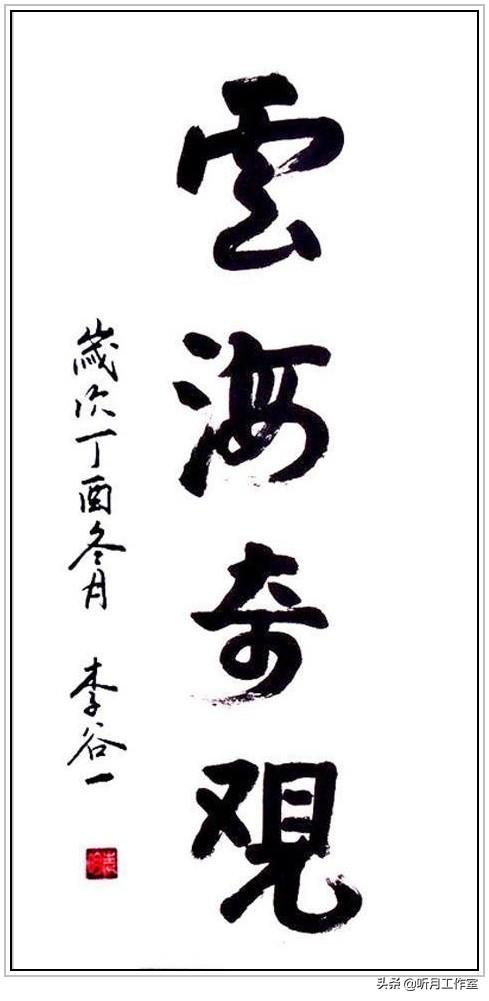 雲海奇观
歳次丁酉冬月 李谷一
头条 @听月工作室